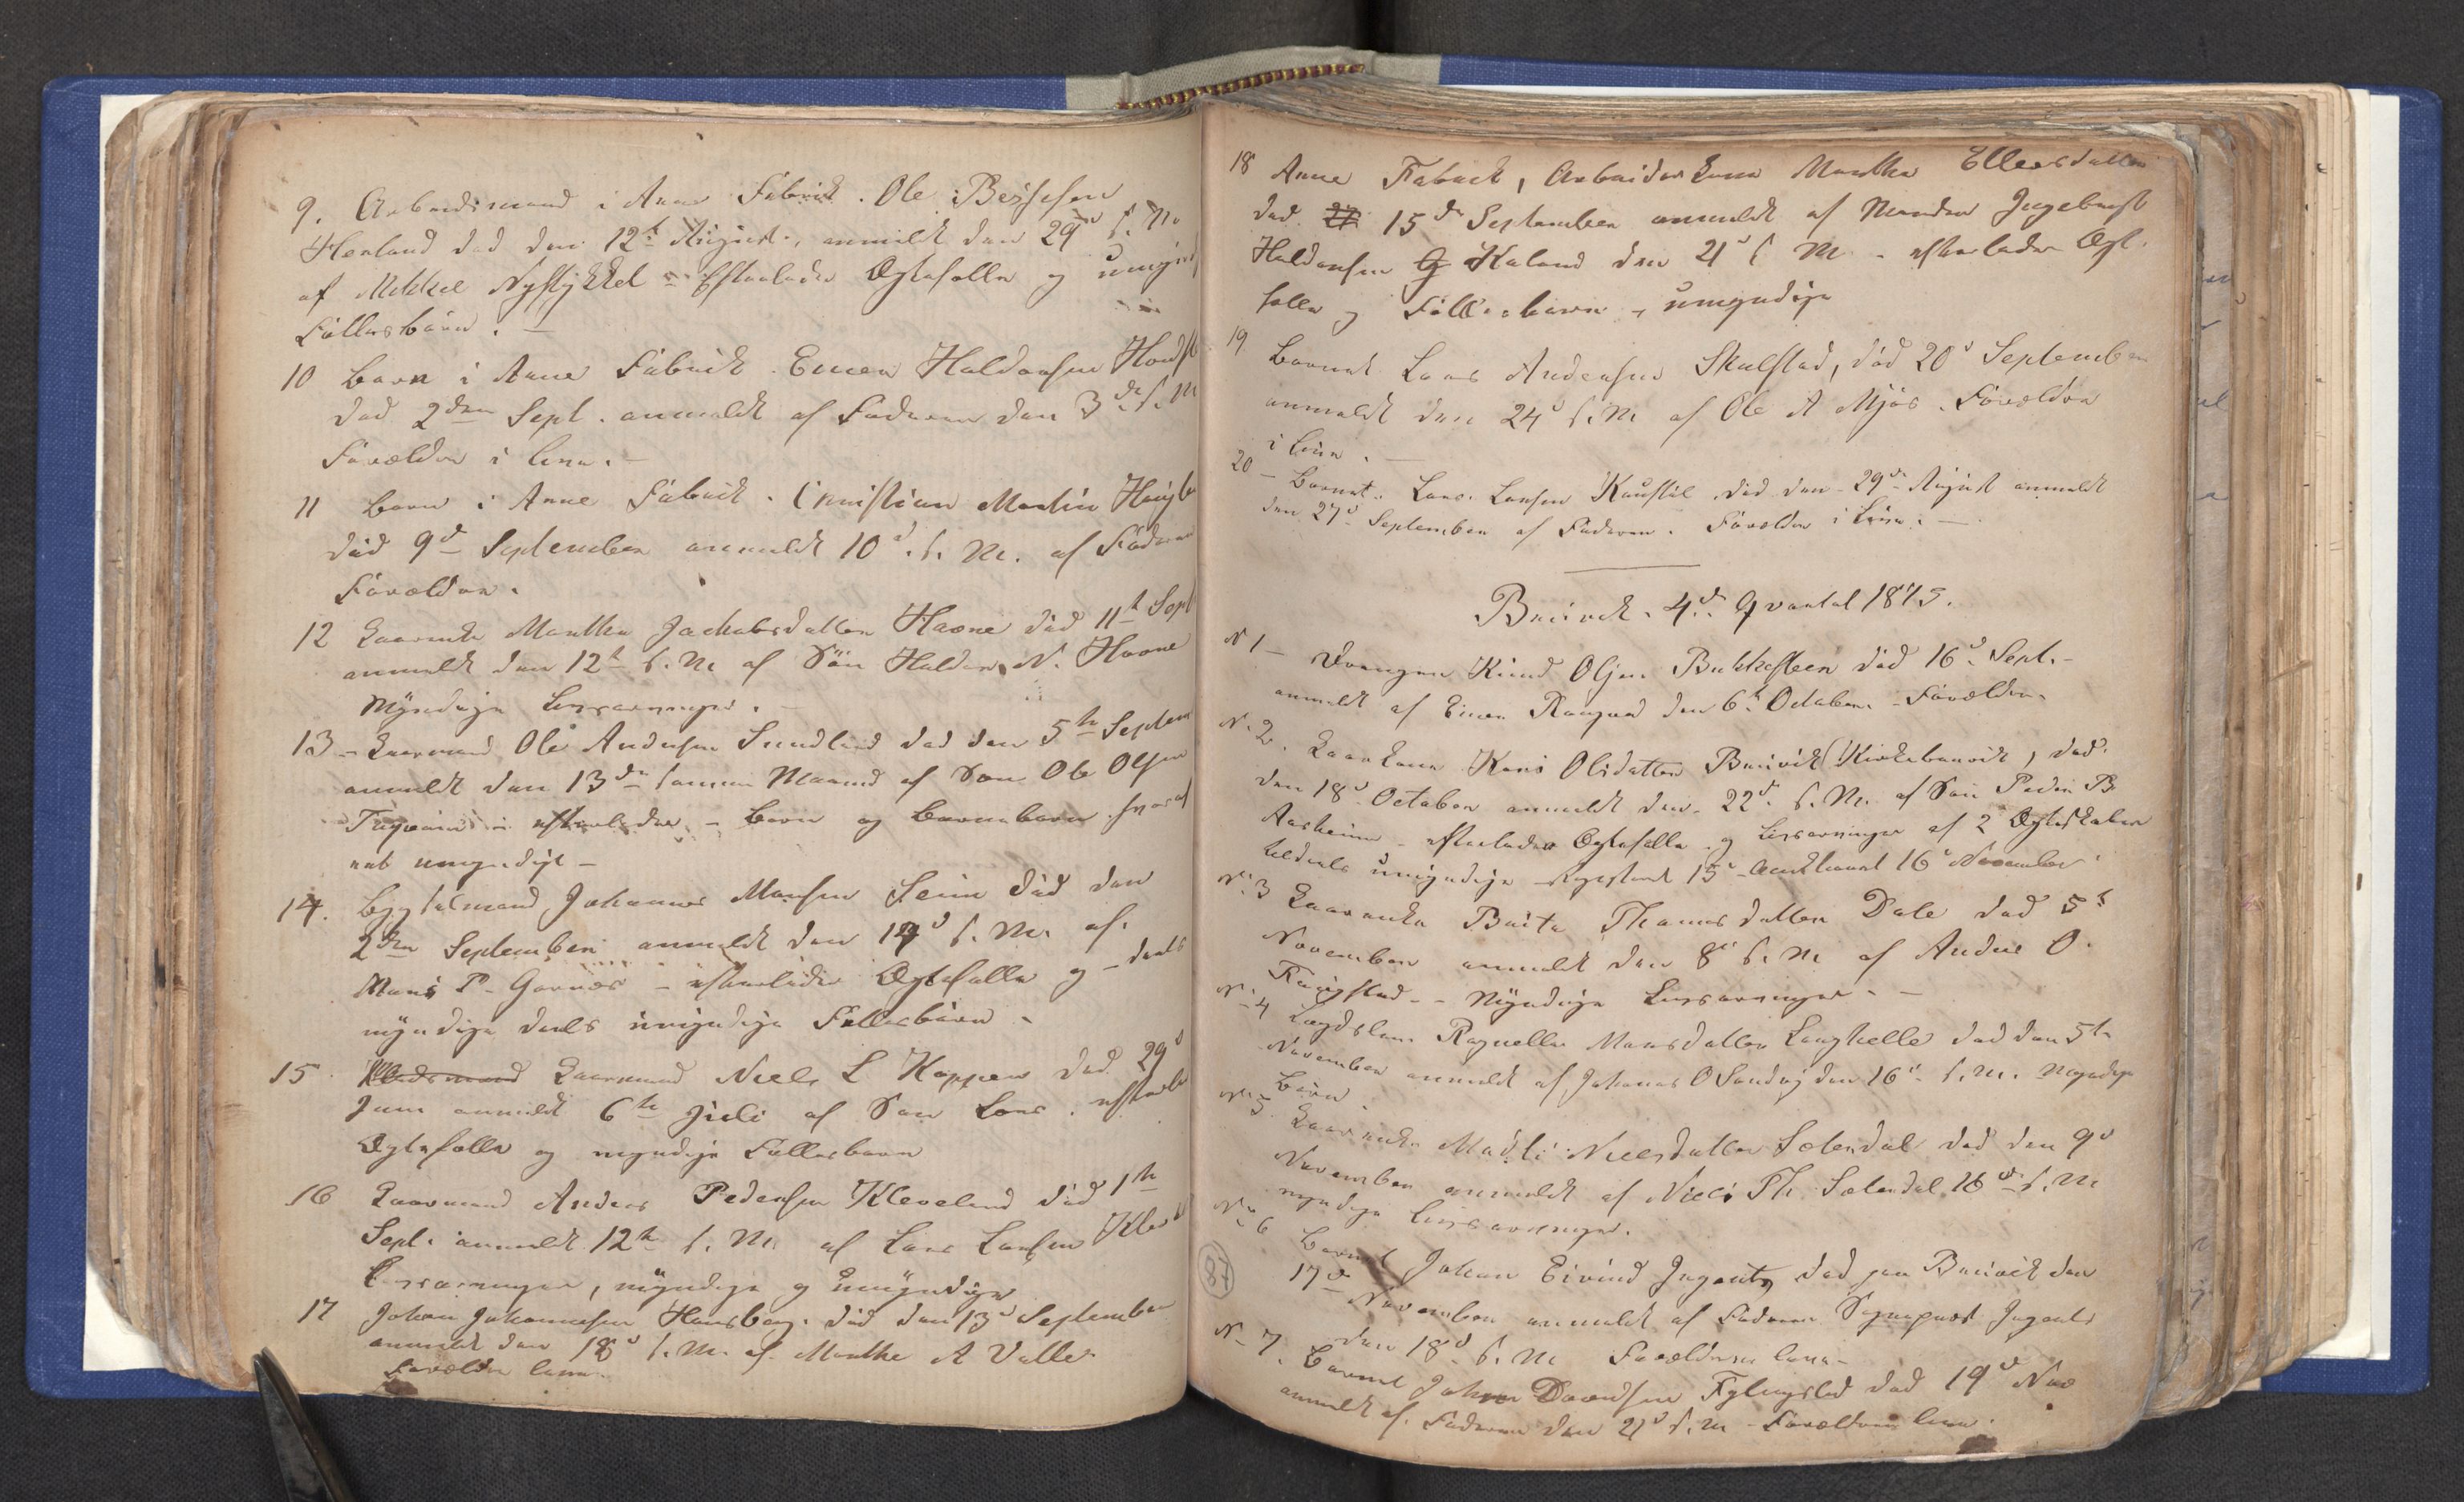 9. Arbeidsmand i Arne Fabrik. Ole Børgesen
Herland død den 12te August, anmeldt den 29de s. M.
af Mikkel Nystykket - efterlader Ægtefælle og umynd
Fællesbørn. -
10 Barn i Arne Fabrik. Einer Haldorsen
død 2den Sept. anmeldt af Faderen den 3de s. M
Forældre i live. -
11 Barn i Arne Fabrik. Christian Martin
død 9de September anmeldt 10de s. M. af Faderen
Forældre.
12 Kaarenke Marthe Jackobsdatter Haone død 11te Sept
anmeldt den 12te s. M. af Søn Haldor N. Haone
Myndige Livsarvinger.
13 - Kaarmand Ole Andersen Sundland død den 5te Septem
anmeldt den 13de samme Maaned af Søn Ole Olsen
efterlader - Børn og Barnebørn hvoraf
umyndigt -
14. Bygselmand Johannes Monsen Seim død den
2den September anmeldt den 14de s. M. af
Mons P. Garnæs - efterlader Ægtefælle og - deels
myndige deels umyndige Fællesbørn -
15 Kaarmand Niels L Koppen død 29de
Juni anmeldt 6te Juli af Søn Lars. efterla
Ægtefælle og myndige Fællesbørn
16 Kaarmand Anders Pedersen Kleveland død 1te
Sept. anmeldt 12te s. M. af Lars Larsen
Livsarvinger, myndige og umyndige
17 Johan Johannesen Hansberg. død den 13de September
anmeldt den 18de s. M. af Marthe A Valle
Forældre live.
18 Arne Fabrik, Arbeiderkone Marthe Ellersdatter
død 27 15de September anmeldt af Manden Ingebrigt
Haldorsen Kaland den 21de s M. - efterlader Ægte-
fælle og Fællesbørn, umyndige
19 Barnet Lars Andersen Skulstad, død 20de September
anmeldt den 24de s. M. af Ole A Mjøs. Forældre
i live. -
20 - Barnet. Lars Larsen død den 29de August anmeldt
den 27de September af Faderen. Forældre i live. -
Bruvik. 4de Qvartal 1875.
N 1 - Drengen Knud Olsen Bukkesteen død 16de Sept. -
anmeldt af Einer den 6te October. - Forældre.
N. 2. Kaarkone Kari Olsdatter Bruvik (Kirkebruvik) død
den 18de October anmeldt den 22de s. M. af Søn Peder B
Aasheim - efterlader Ægtefælle og Livsarvinger af 2 Ægteskaber
tildeels umyndige - 15de 16de November
No. 3 Kaarenke Brita Thomasdatter Dale død 5te
November anmeldt den 8de s. M. af Anders O.
- Myndige Livsarvinger. -
No. 4 Lægdslem Ragnilla Monsdatter Langhelle død den 5te
November anmeldt af Johannes O Sandvig den 16de s. M. Myndige
Børn.
No. 5 Kaarenke Madli Nielsdatter Sælendal død den 9de
November anmeldt af Niels Th. Sælendal 16de s. M.
myndige Livsarvinger.
No. 6 Barnet Johan Eivind død paa Bruvik den
17de November anmeldt af Faderen
den 18de s. M Forældrene live -
N. 7. Barnet Johan Davidsen død 19de Nov
anmeldt af Faderen den 21de s. M - Forældrene live.
87